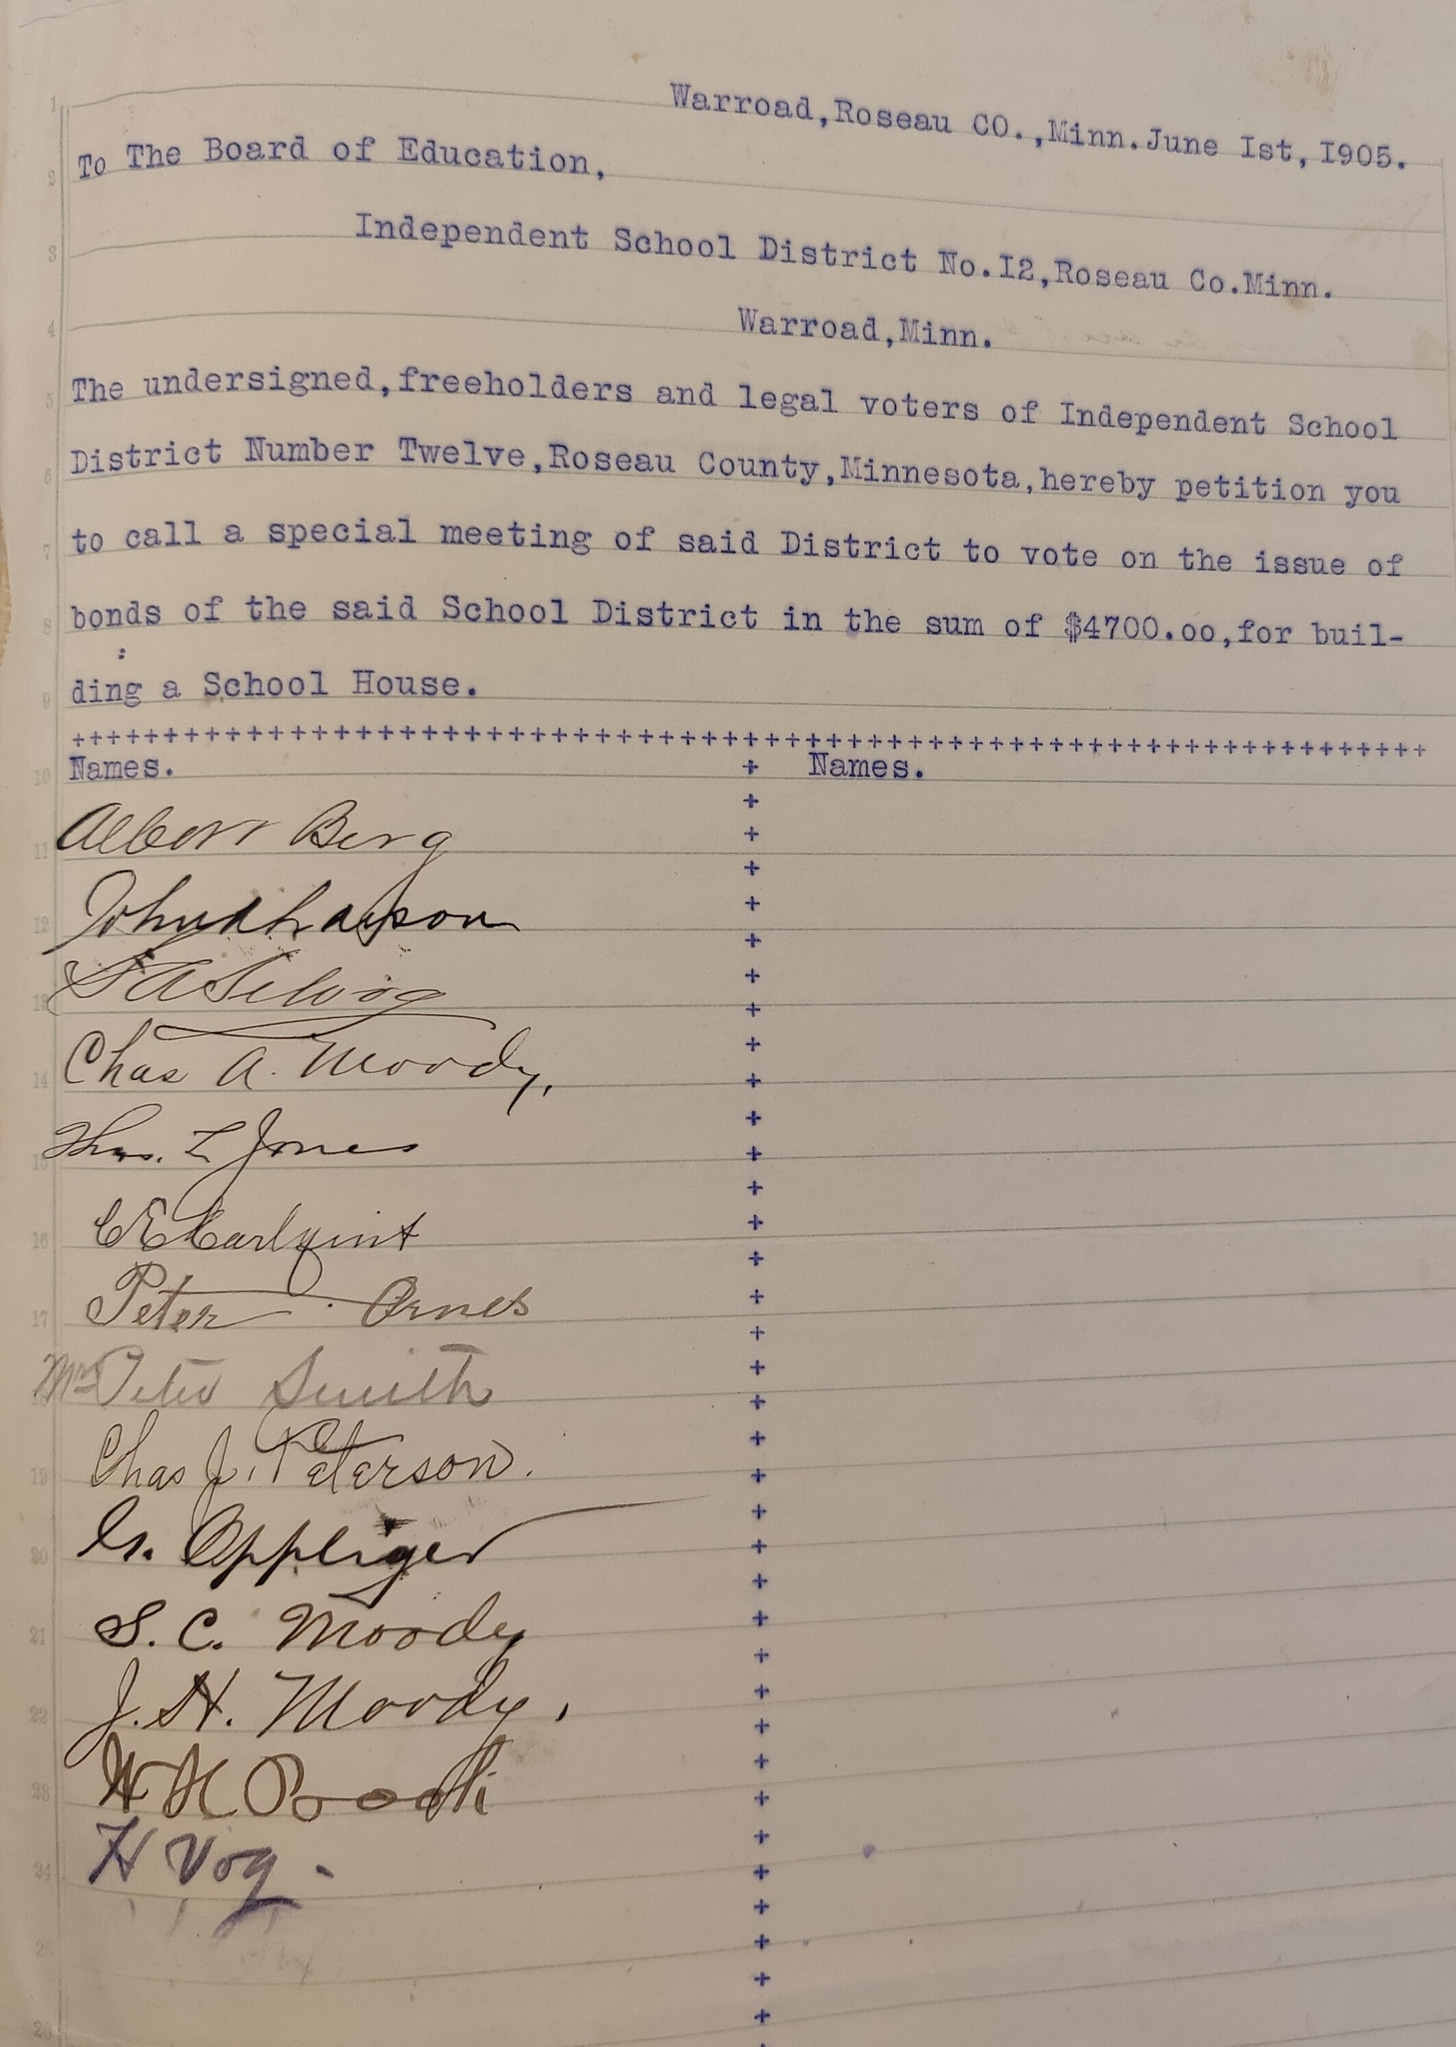 Warroad,Roseau CO.,Minn.June Ist,I905.
To The Board of Education,
Independent School District No.I2,Roseau Co.Minn.
Warroad,Minn.
The undersigned,freeholders and legal voters of Independent School
District Number Twelve,Roseau County,Minnesota,hereby petition you
to call a special meeting of said District to vote on the issue of
bonds of the said School District in the sum of $4700.oo,for buil-
ding a School House.
+++++++++++++++++++++++++++++++++++++++++++++++++++++++++++++++++
Names. + Names.
Albert Berg
John
S A Selvog
Chas A. Moody,
Thos. L Jones
C E Carlquint
Peter Ornes
Mrs Peter Smith
Chas J. Peterson.
G. Oppliger
S. C. Moody
J. H. Moody,
H
H Vog -